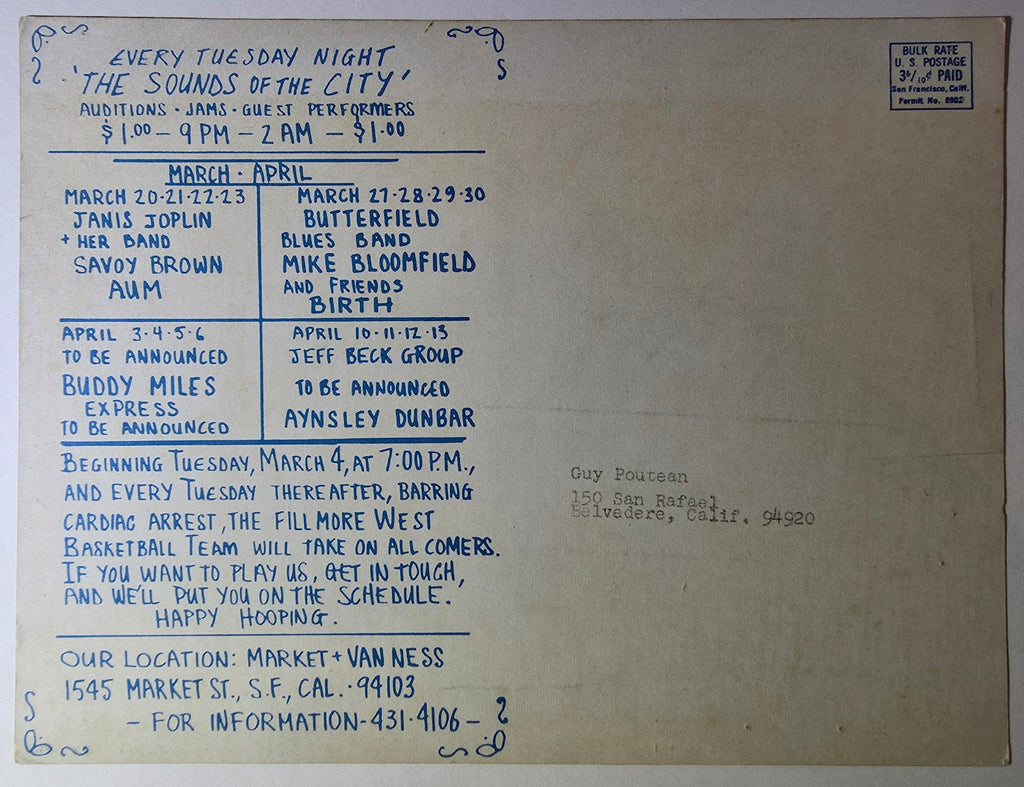 EVERY TUESDAY NIGHT
'THE SOUNDS OF THE CITY'
AUDITIONS · JAMS · GUEST PERFORMERS
$1.00 — 9 PM — 2 AM — $1.00
MARCH · APRIL
MARCH 20·21·22·23
JANIS JOPLIN
+ HER BAND
SAVOY BROWN
AUM
MARCH 27·28·29·30
BUTTERFIELD
BLUES BAND
MIKE BLOOMFIELD
AND FRIENDS
BIRTH
APRIL 3·4·5·6
TO BE ANNOUNCED
BUDDY MILES
EXPRESS
TO BE ANNOUNCED
APRIL 10·11·12·13
JEFF BECK GROUP
TO BE ANNOUNCED
AYNSLEY DUNBAR
BEGINNING TUESDAY, MARCH 4, AT 7:00 P.M.,
AND EVERY TUESDAY THEREAFTER, BARRING
CARDIAC ARREST, THE FILLMORE WEST
BASKETBALL TEAM WILL TAKE ON ALL COMERS.
IF YOU WANT TO PLAY US, GET IN TOUCH,
AND WE'LL PUT YOU ON THE SCHEDULE.
HAPPY HOOPING.
OUR LOCATION: MARKET + VAN NESS
1545 MARKET ST., S.F., CAL. · 94103
— FOR INFORMATION - 431·4106 —
BULK RATE
U. S. POSTAGE
3⁶/₁₀¢ PAID
San Francisco, Calif.
Permit No. 8902
Guy Poutean
150 San Rafael
Belvedere, Calif. 94920